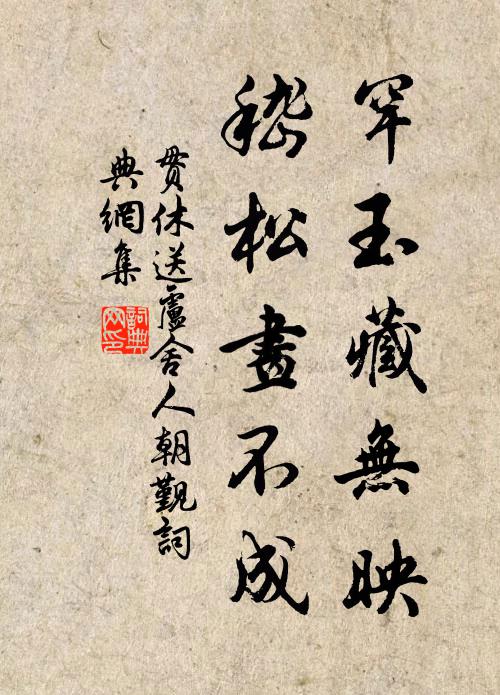 罕玉藏無映
嵇松畫不成
貫休送盧舍人朝覲詞
典網集
詞典
网印